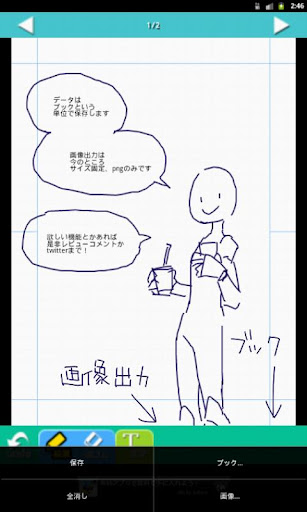 2:46
1/2
データは
ブックという
単位で保存します
画像出力は
今のところ
サイズ固定、pngのみです
欲しい機能とかあれば
是非レビューコメントか
twitterまで！
ブック
画像出力
T
保存
ブック...
全消し
画像...